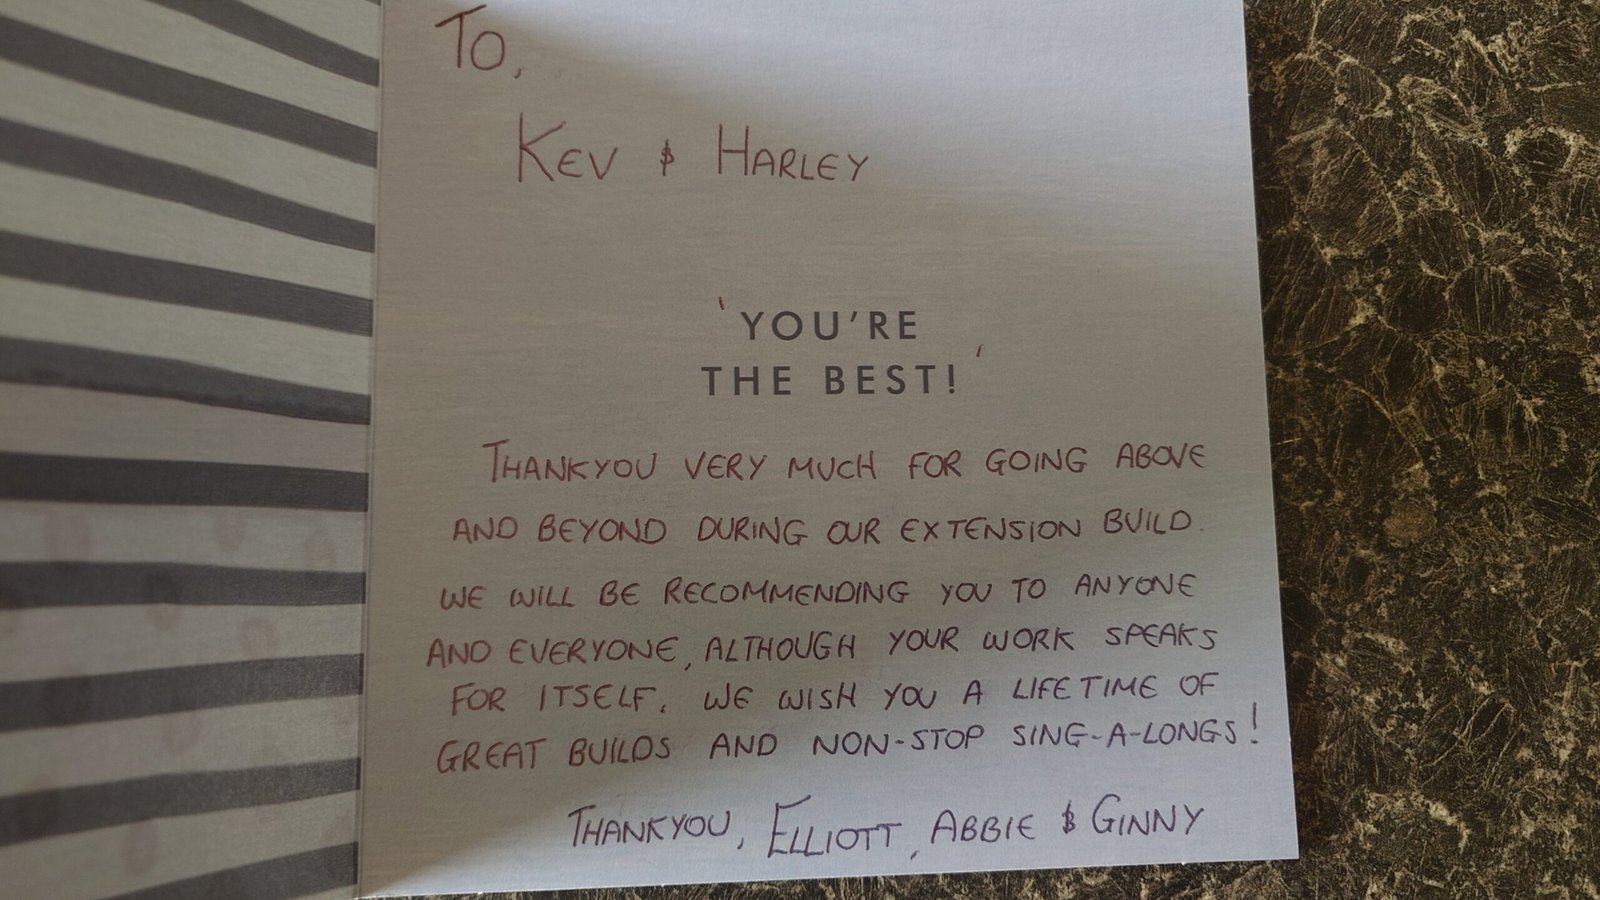 To,
KEV & HARLEY
'YOU'RE
THE BEST!'
THANKYOU VERY MUCH FOR GOING ABOVE
AND BEYOND DURING OUR EXTENSION BUILD.
WE WILL BE RECOMMENDING YOU TO ANYONE
AND EVERYONE, ALTHOUGH YOUR WORK SPEAKS
FOR ITSELF. WE WISH YOU A LIFETIME OF
GREAT BUILDS AND NON-STOP SING-A-LONGS!
THANKYOU, ELLIOTT, ABBIE & GINNY